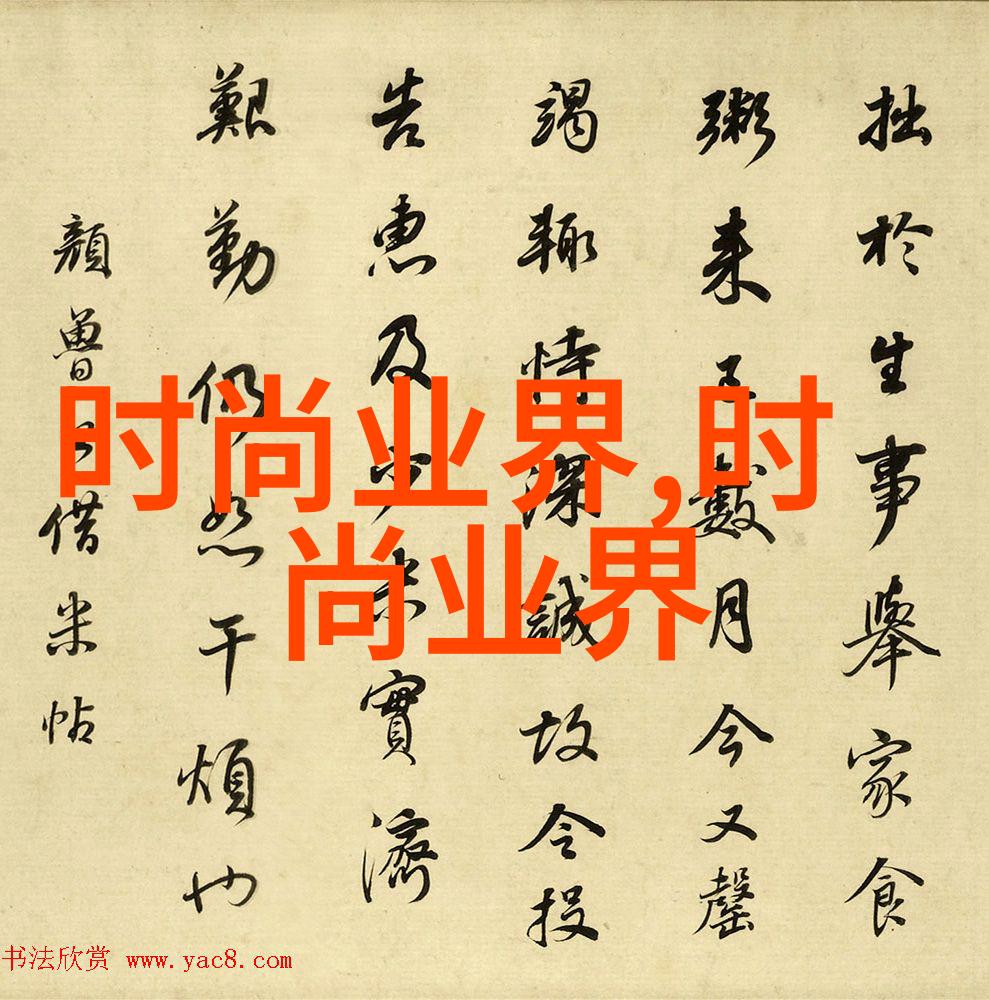 拙於生事舉家食
粥来已數月今又罄
竭輙恃深誠故令投
告惠及少米實濟
艱勤仍恕干煩也
顔魯公借米帖
时尚业界,时
尚业界
书法欣赏 www.yac8.com